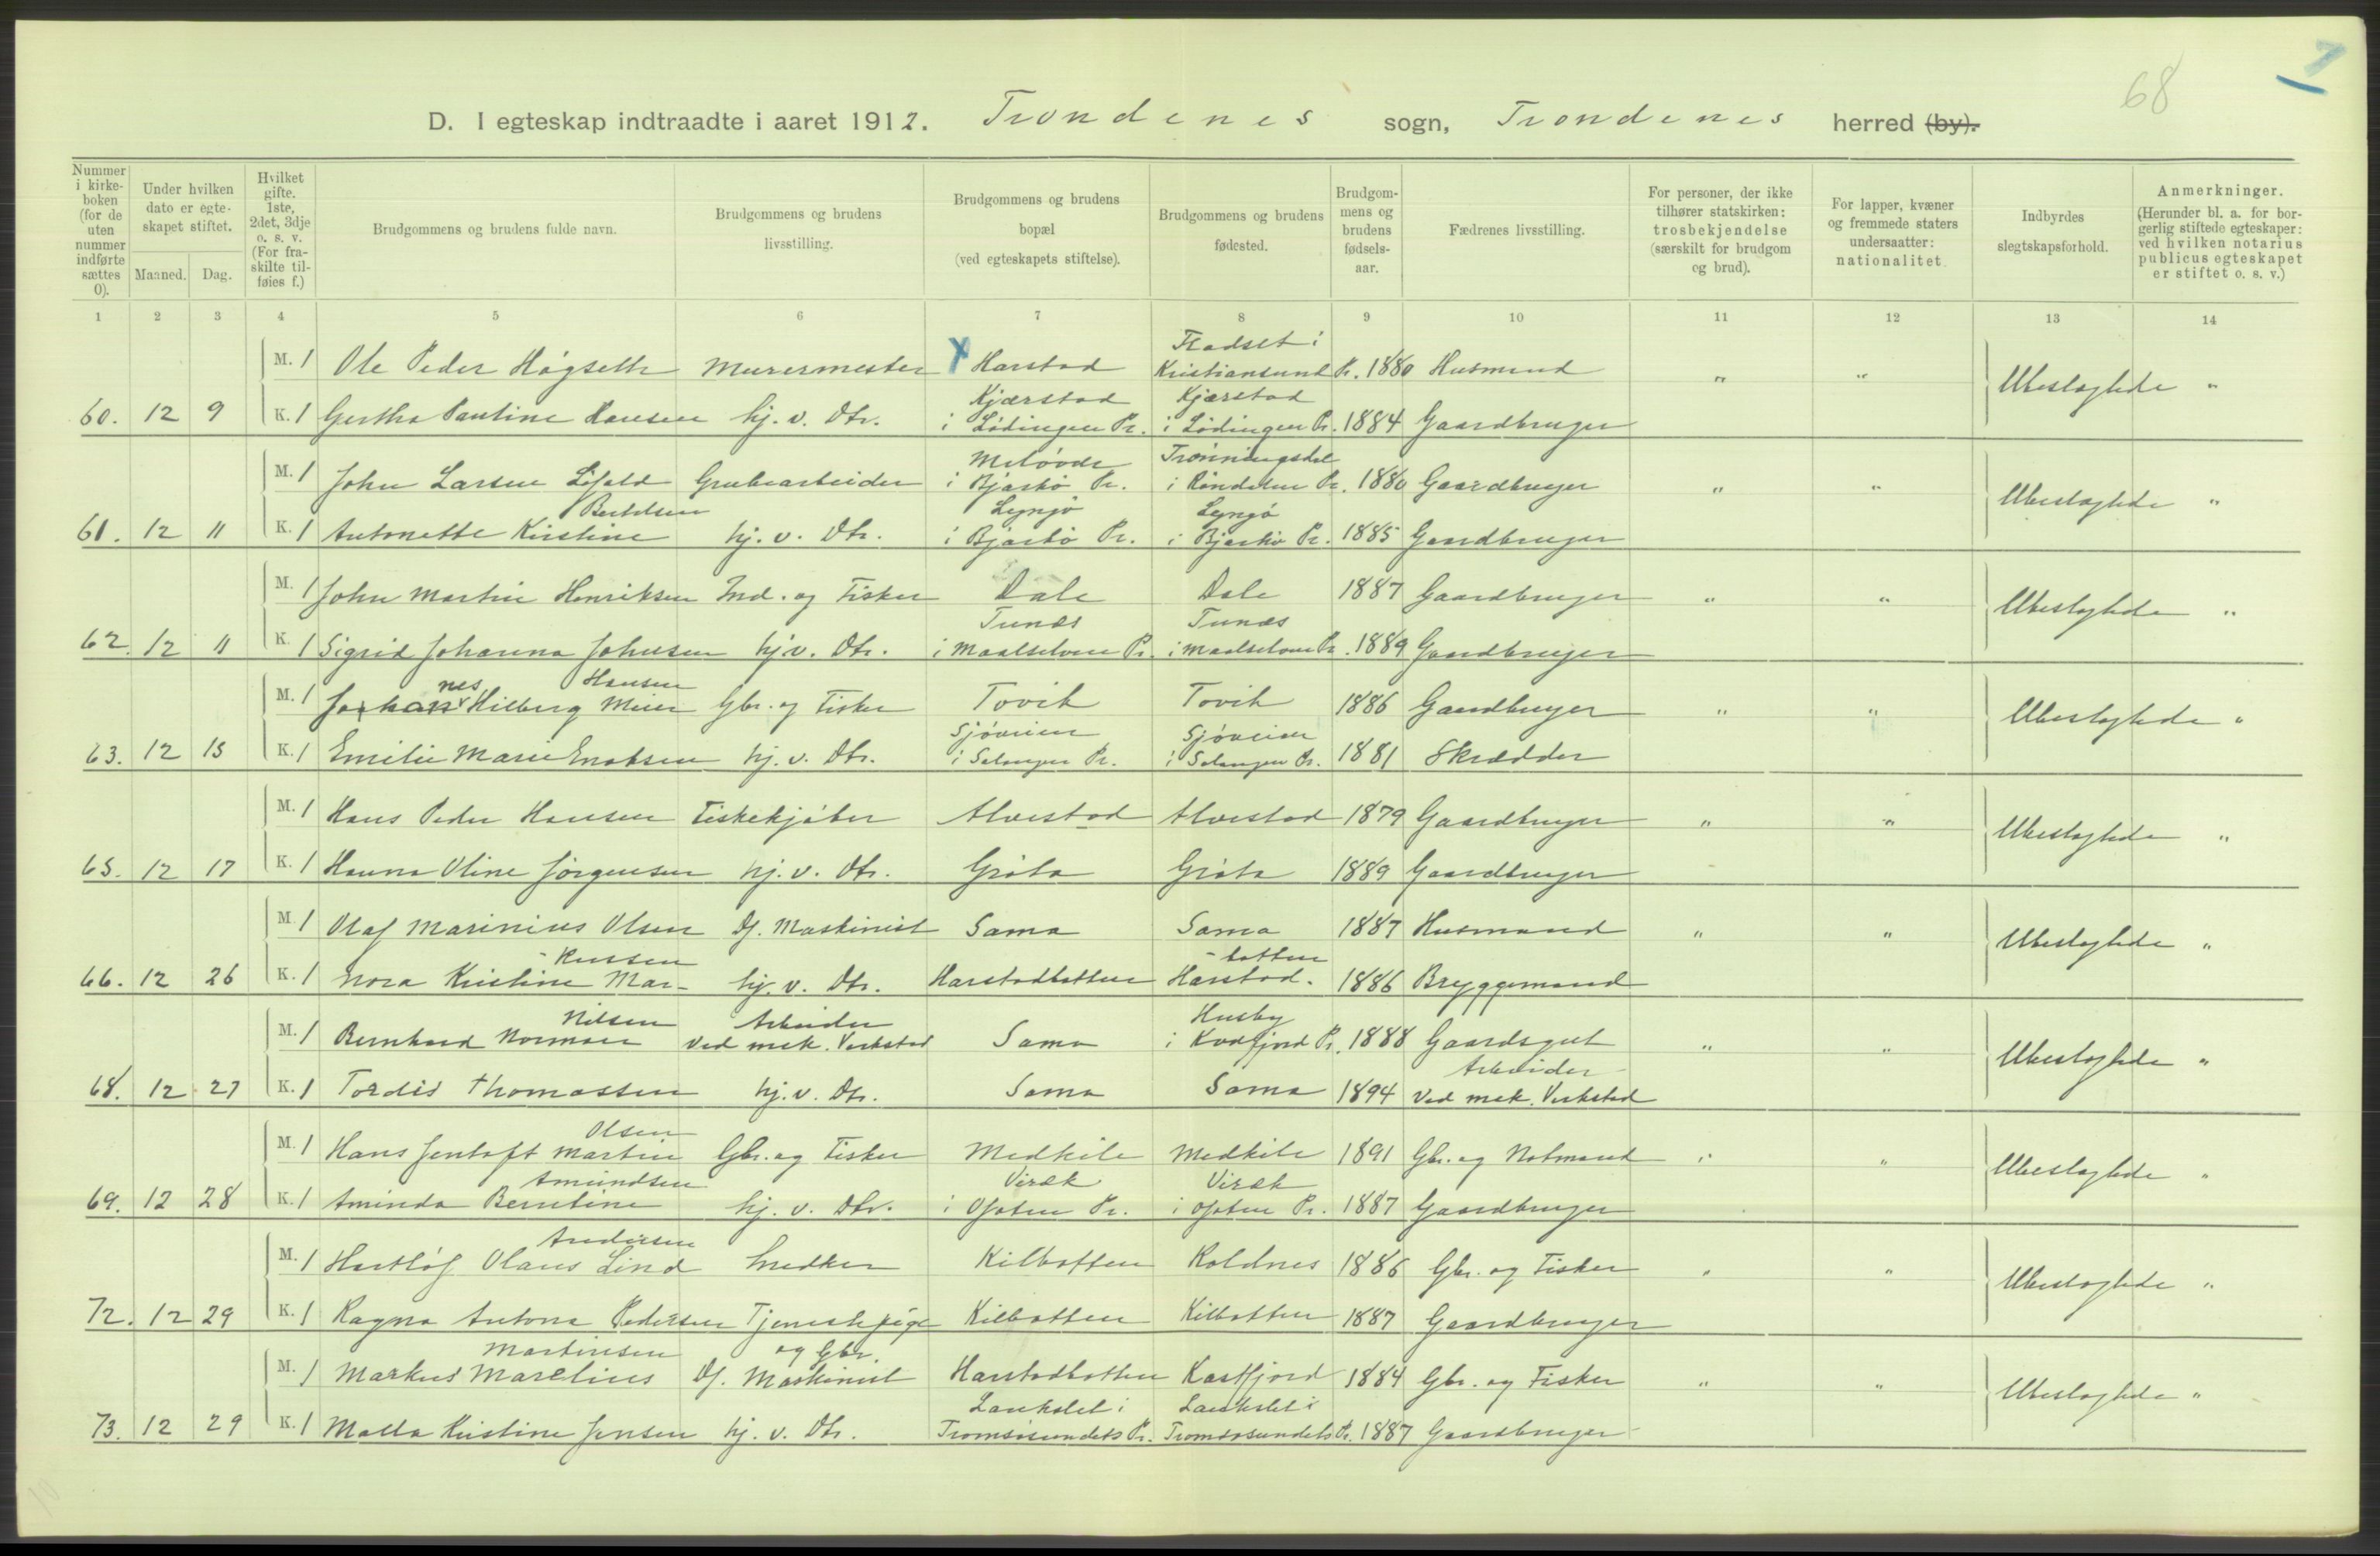 68
D. I egteskap indtraadte i aaret 1912. Trondenes sogn, Trondenes herred (by).
Nummer i kirke-boken (for de uten nummer indførte sættes 0).
Under hvilken dato er egte-skapet stiftet.
Maaned. Dag.
Hvilket gifte. 1ste, 2det, 3dje o. s. v. (For fra-skilte til-føies f.)
Brudgommens og brudens fulde navn.
Brudgommens og brudens livsstilling.
Brudgommens og brudens bopæl (ved egteskapets stiftelse).
Brudgommens og brudens fødested.
Brudgom-mens og brudens fødsels-aar.
Fædrenes livsstilling.
For personer, der ikke tilhører statskirken: trosbekjendelse (særskilt for brudgom og brud).
For lapper, kvæner og fremmede staters undersaatter: nationalitet.
Indbyrdes slegtskapsforhold.
Anmerkninger. (Herunder bl. a. for bor-gerlig stiftede egteskaper: ved hvilken notarius publicus egteskapet er stiftet o. s. v.)
1 2 3 4 5 6 7 8 9 10 11 12 13 14
M. 1 Ole Peder Høgseth Murermester X Harstad Fladset i Kristiansund Pr. 1880 Husmand " " Ubeslegtede "
60. 12 9 K. 1 Gertha Pauline Hansen hj. v. Dtr. Kjærstad i Lødingen Pr. Kjærstad i Lødingen Pr. 1884 Gaardbruger
M. 1 John Larsen Grubearbeider i Bjarkø Pr. 1880 Gaardbruger " " Ubeslegtede "
61. 12 11 K. 1 Antonette Kirstine Bertelsen hj. v. Dtr. i Bjarkø Pr. i Bjarkø Pr. 1885 Gaardbruger
M. 1 John Martin Henriksen Ind. og Fisker Dale Dale 1887 Gaardbruger " " Ubeslegtede "
62. 12 11 K. 1 Sigrid Johanna Johnsen hj. v. Dtr. i Maalselven Pr. i Maalselven Pr. 1889 Gaardbruger
M. 1 Johannes Hilberg Meier Hansen Gbr. og Fisker Tovik Tovik 1886 Gaardbruger " " Ubeslegtede "
63. 12 15 K. 1 Emilie Marie Enoksen hj. v. Dtr. Sjøveien i Salangen Pr. Sjøveien i Salangen Pr. 1881 Skrædder
M. 1 Hans Peder Hansen Fiskekjøber Alvestad Alvestad 1879 Gaardbruger " " Ubeslegtede "
65. 12 17 K. 1 Hanna Oline Jørgensen hj. v. Dtr. Grøta Grøta 1889 Gaardbruger
M. 1 Olaf Marinius Olsen Df. Maskinist Sama Sama 1887 Husmand " " Ubeslegtede "
66. 12 26 K. 1 Nora Kristine Mar-kussen hj. v. Dtr. Harstadbotten Harstad-botten 1886 Bryggemand
M. 1 Bernhard Normann Nilsen Arbeider ved mek. Verksted Sama Husby i Kvæfjord Pr. 1888 Gaardsgut " " Ubeslegtede "
68. 12 27 K. 1 Tordis Thomassen hj. v. Dtr. Sama Sama 1894 Arbeider ved mek. Verksted
M. 1 Hans Jentoft Martin Olsen Gbr. og Fisker Medkile Medkile 1891 Gbr. og Notmand " " Ubeslegtede "
69. 12 28 K. 1 Aminda Berntine Amundsen hj. v. Dtr. Virak i Ofoten Pr. Virak i Ofoten Pr. 1887 Gaardbruger
M. 1 Hartløf Olaus Lind Andersen Snedker Kilbotten Roldnes 1886 Gbr. og Fisker " " Ubeslegtede "
72. 12 29 K. 1 Ragna Antona Pedersen Tjenestepige Kilbotten Kilbotten 1887 Gaardbruger
M. 1 Markus Marelius Martinsen Df. Maskinist og Gbr. Harstadbotten Kasfjord 1884 Gbr. og Fisker " " Ubeslegtede "
73. 12 29 K. 1 Malla Kristine Jensen hj. v. Dtr. i Tromsøsundets Pr. i Tromsøsundets Pr. 1887 Gaardbruger